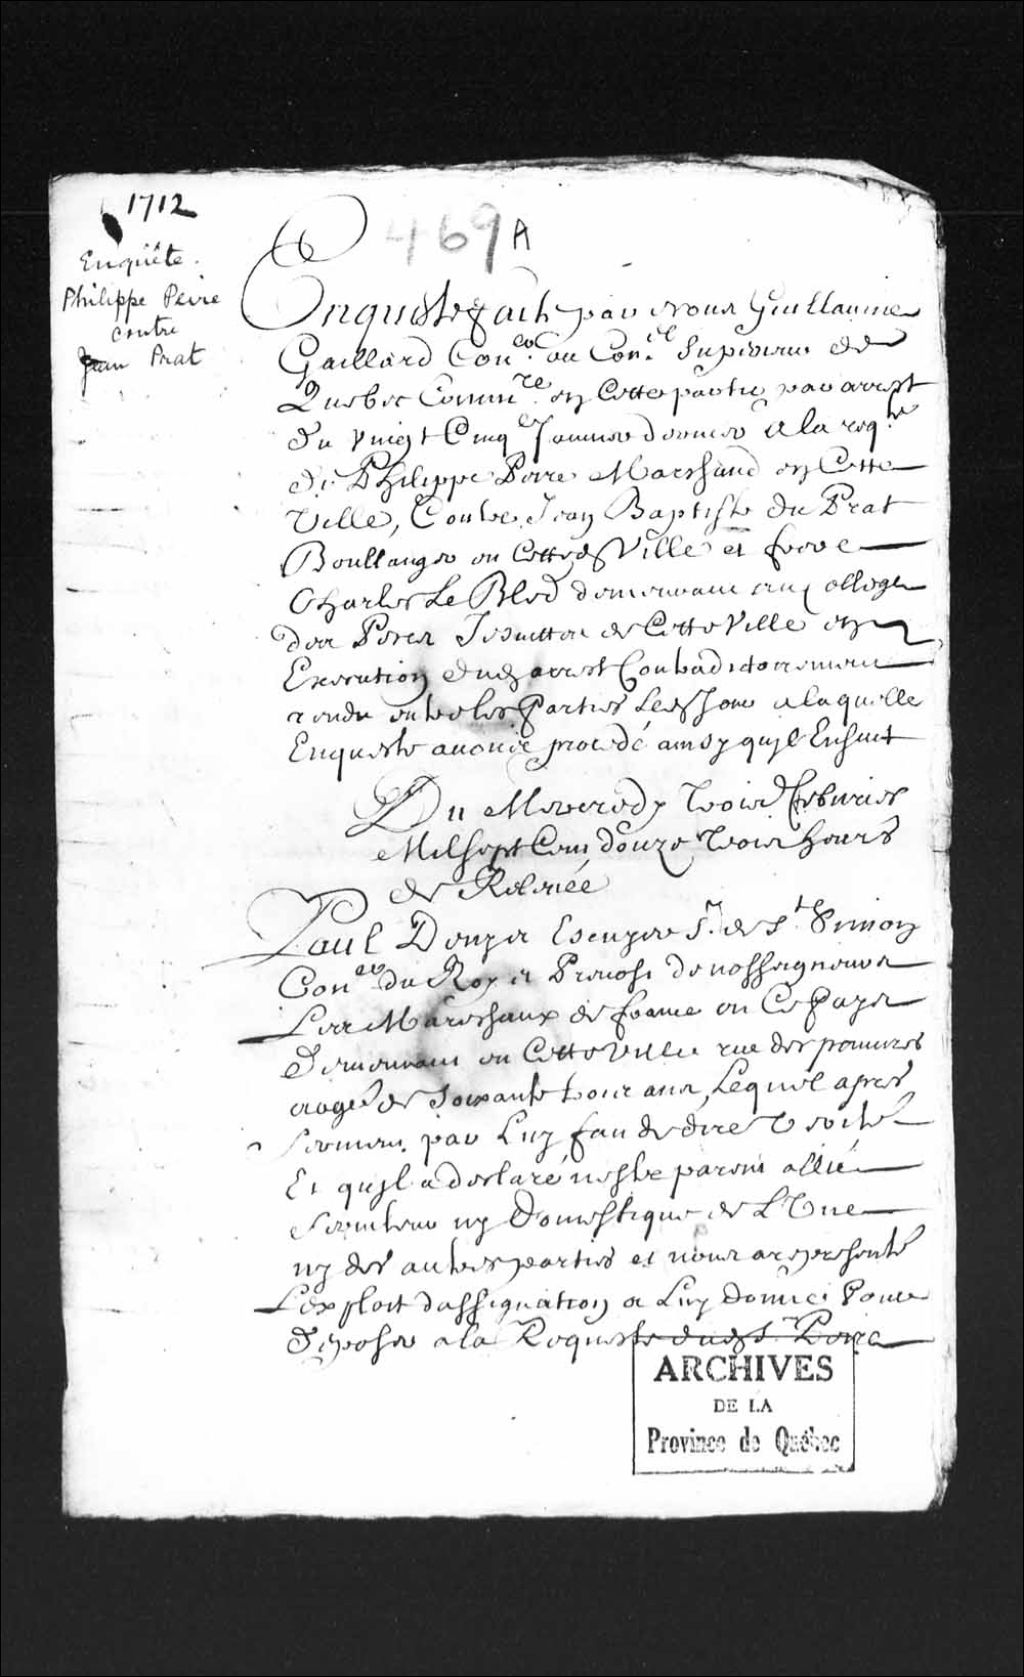 1712
Enquête.
Philippe Peire
contre
Jean Prat
469 A
Enqueste faite par nous Guillaume
Gaillard Con.er au Con.el Superieur de
Quebec Comm.re en Cette partie par arrest
du vingt Cinq.e Januier dernier a la req.te
de Philippe Peire Marchand en Cette
Ville, Contre Jean Baptiste du Prat
Boullanger en Cetted. Ville et frere
Charles Le Bled demeurant au College
des Peres Jesuittes de Cette Ville en
Execution dud. arrest Contradictoirement
rendu entre les Parties Led. Jour a laquelle
Enqueste auons procedé ainsy quil Ensuit
Du Mercredy trois.e feburier
Mil sept Cens douze trois heures
de Releuée
Paul Denys Escuyer S.r de S.t Simon
Con.er du Roy et Preuost de nosseigneurs
Les Mareschaux de france en Ce Pays
demeurant en Cette Ville rue des pauures
aagé de Soixante trois ans, Lequel apres
serment par Luy fait de dire Verité
Et quil a declaré nestre parent allié
seruiteur ny Domestique de L'Une
ny des autres parties et nous a representé
L'exploit dassignation a Luy donné Pour
deposer a la Requeste dud. S.r Peire
ARCHIVES
DE LA
Province de Québec